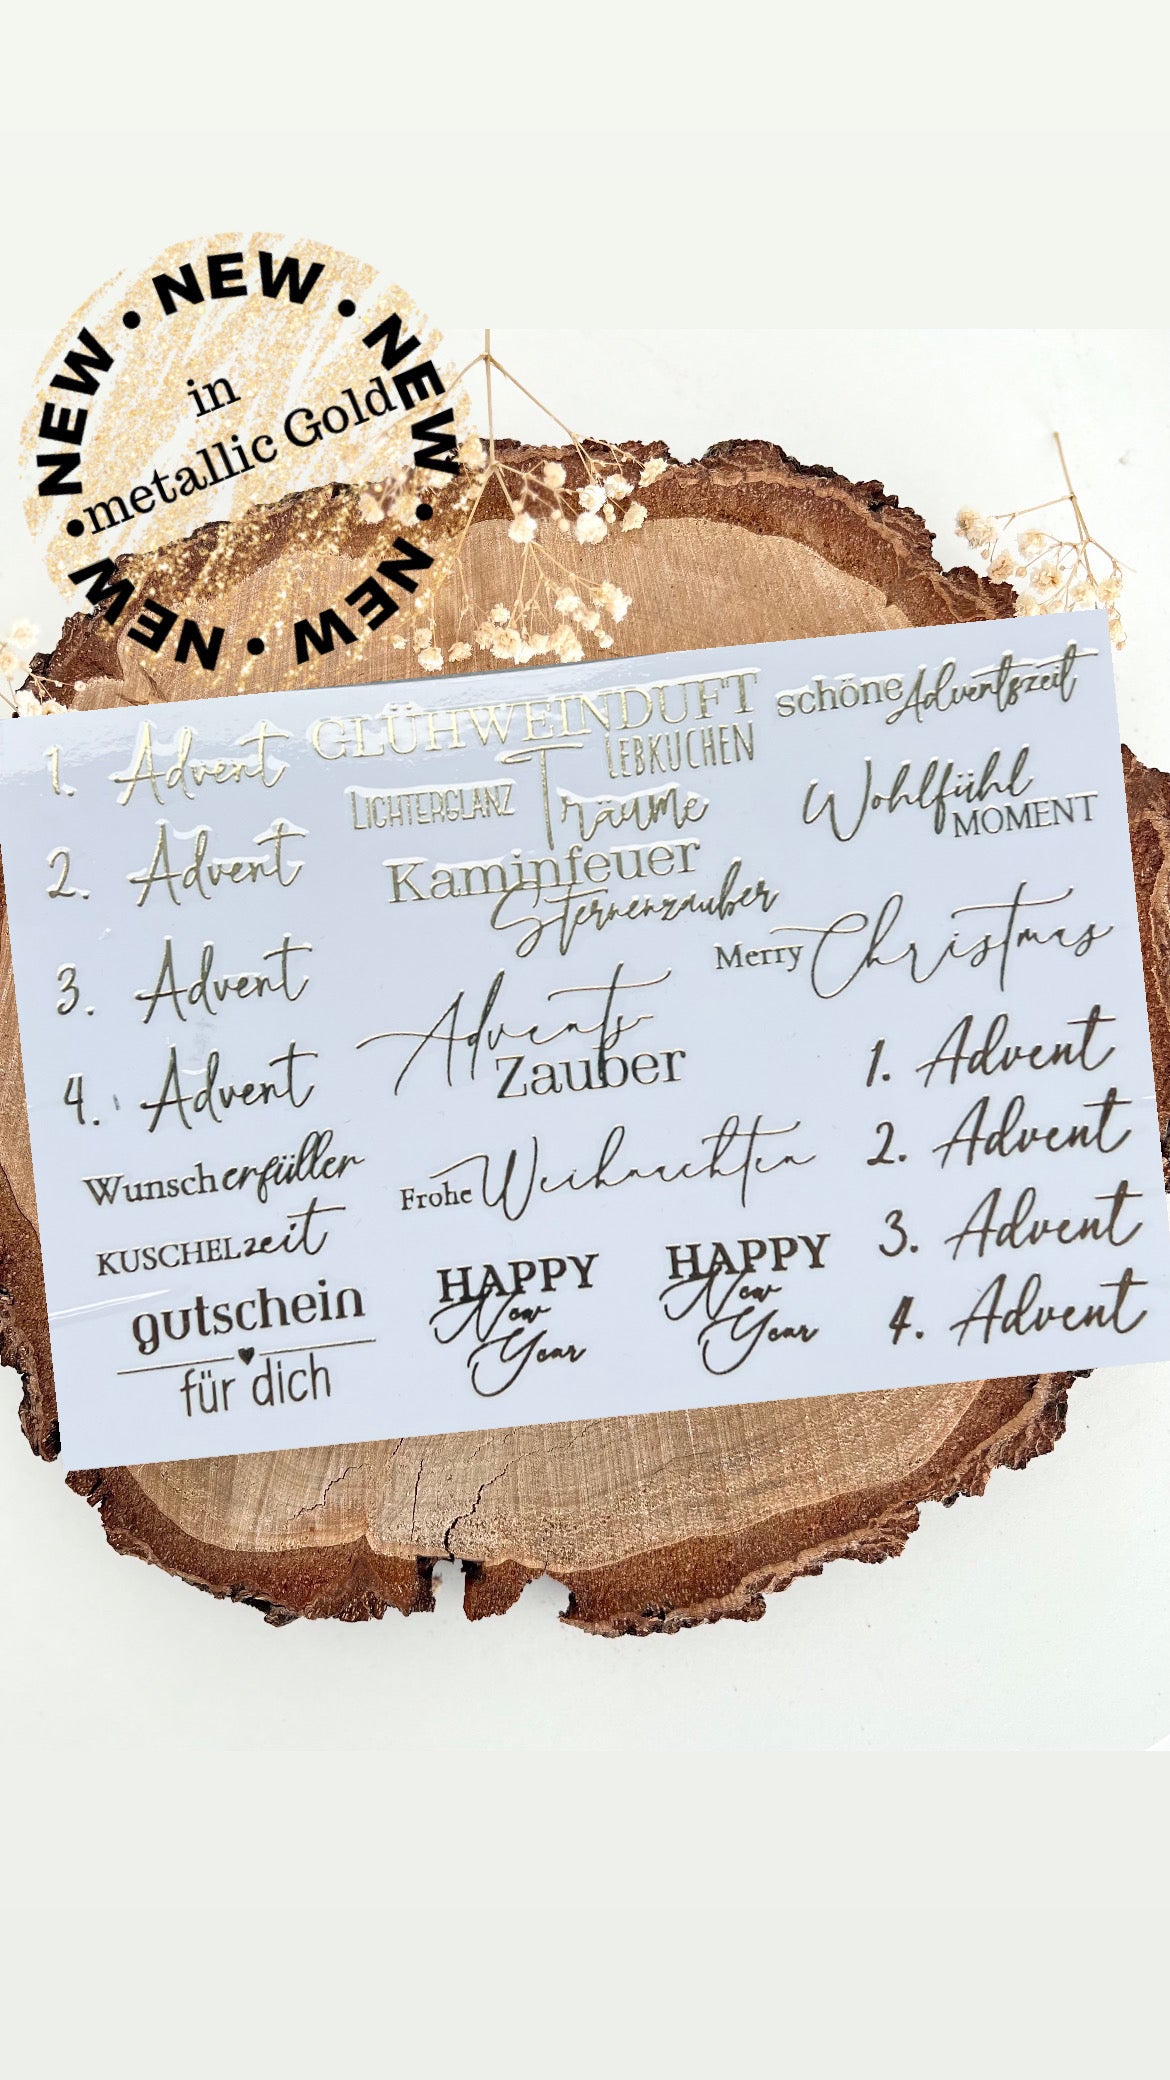 NEW • NEW • NEW • NEW • NEW • NEW •
in
metallic Gold
1. Advent
2. Advent
3. Advent
4. Advent
Wunscherfüller
KUSCHELzeit
gutschein
für dich
GLÜHWEINDUFT
LEBKUCHEN
LICHTERGLANZ
Träume
Kaminfeuer
Sternenzauber
Advents
Zauber
Frohe Weihnachten
HAPPY
New
Year
HAPPY
New
Year
schöne Adventszeit
Wohlfühl
MOMENT
Merry Christmas
1. Advent
2. Advent
3. Advent
4. Advent